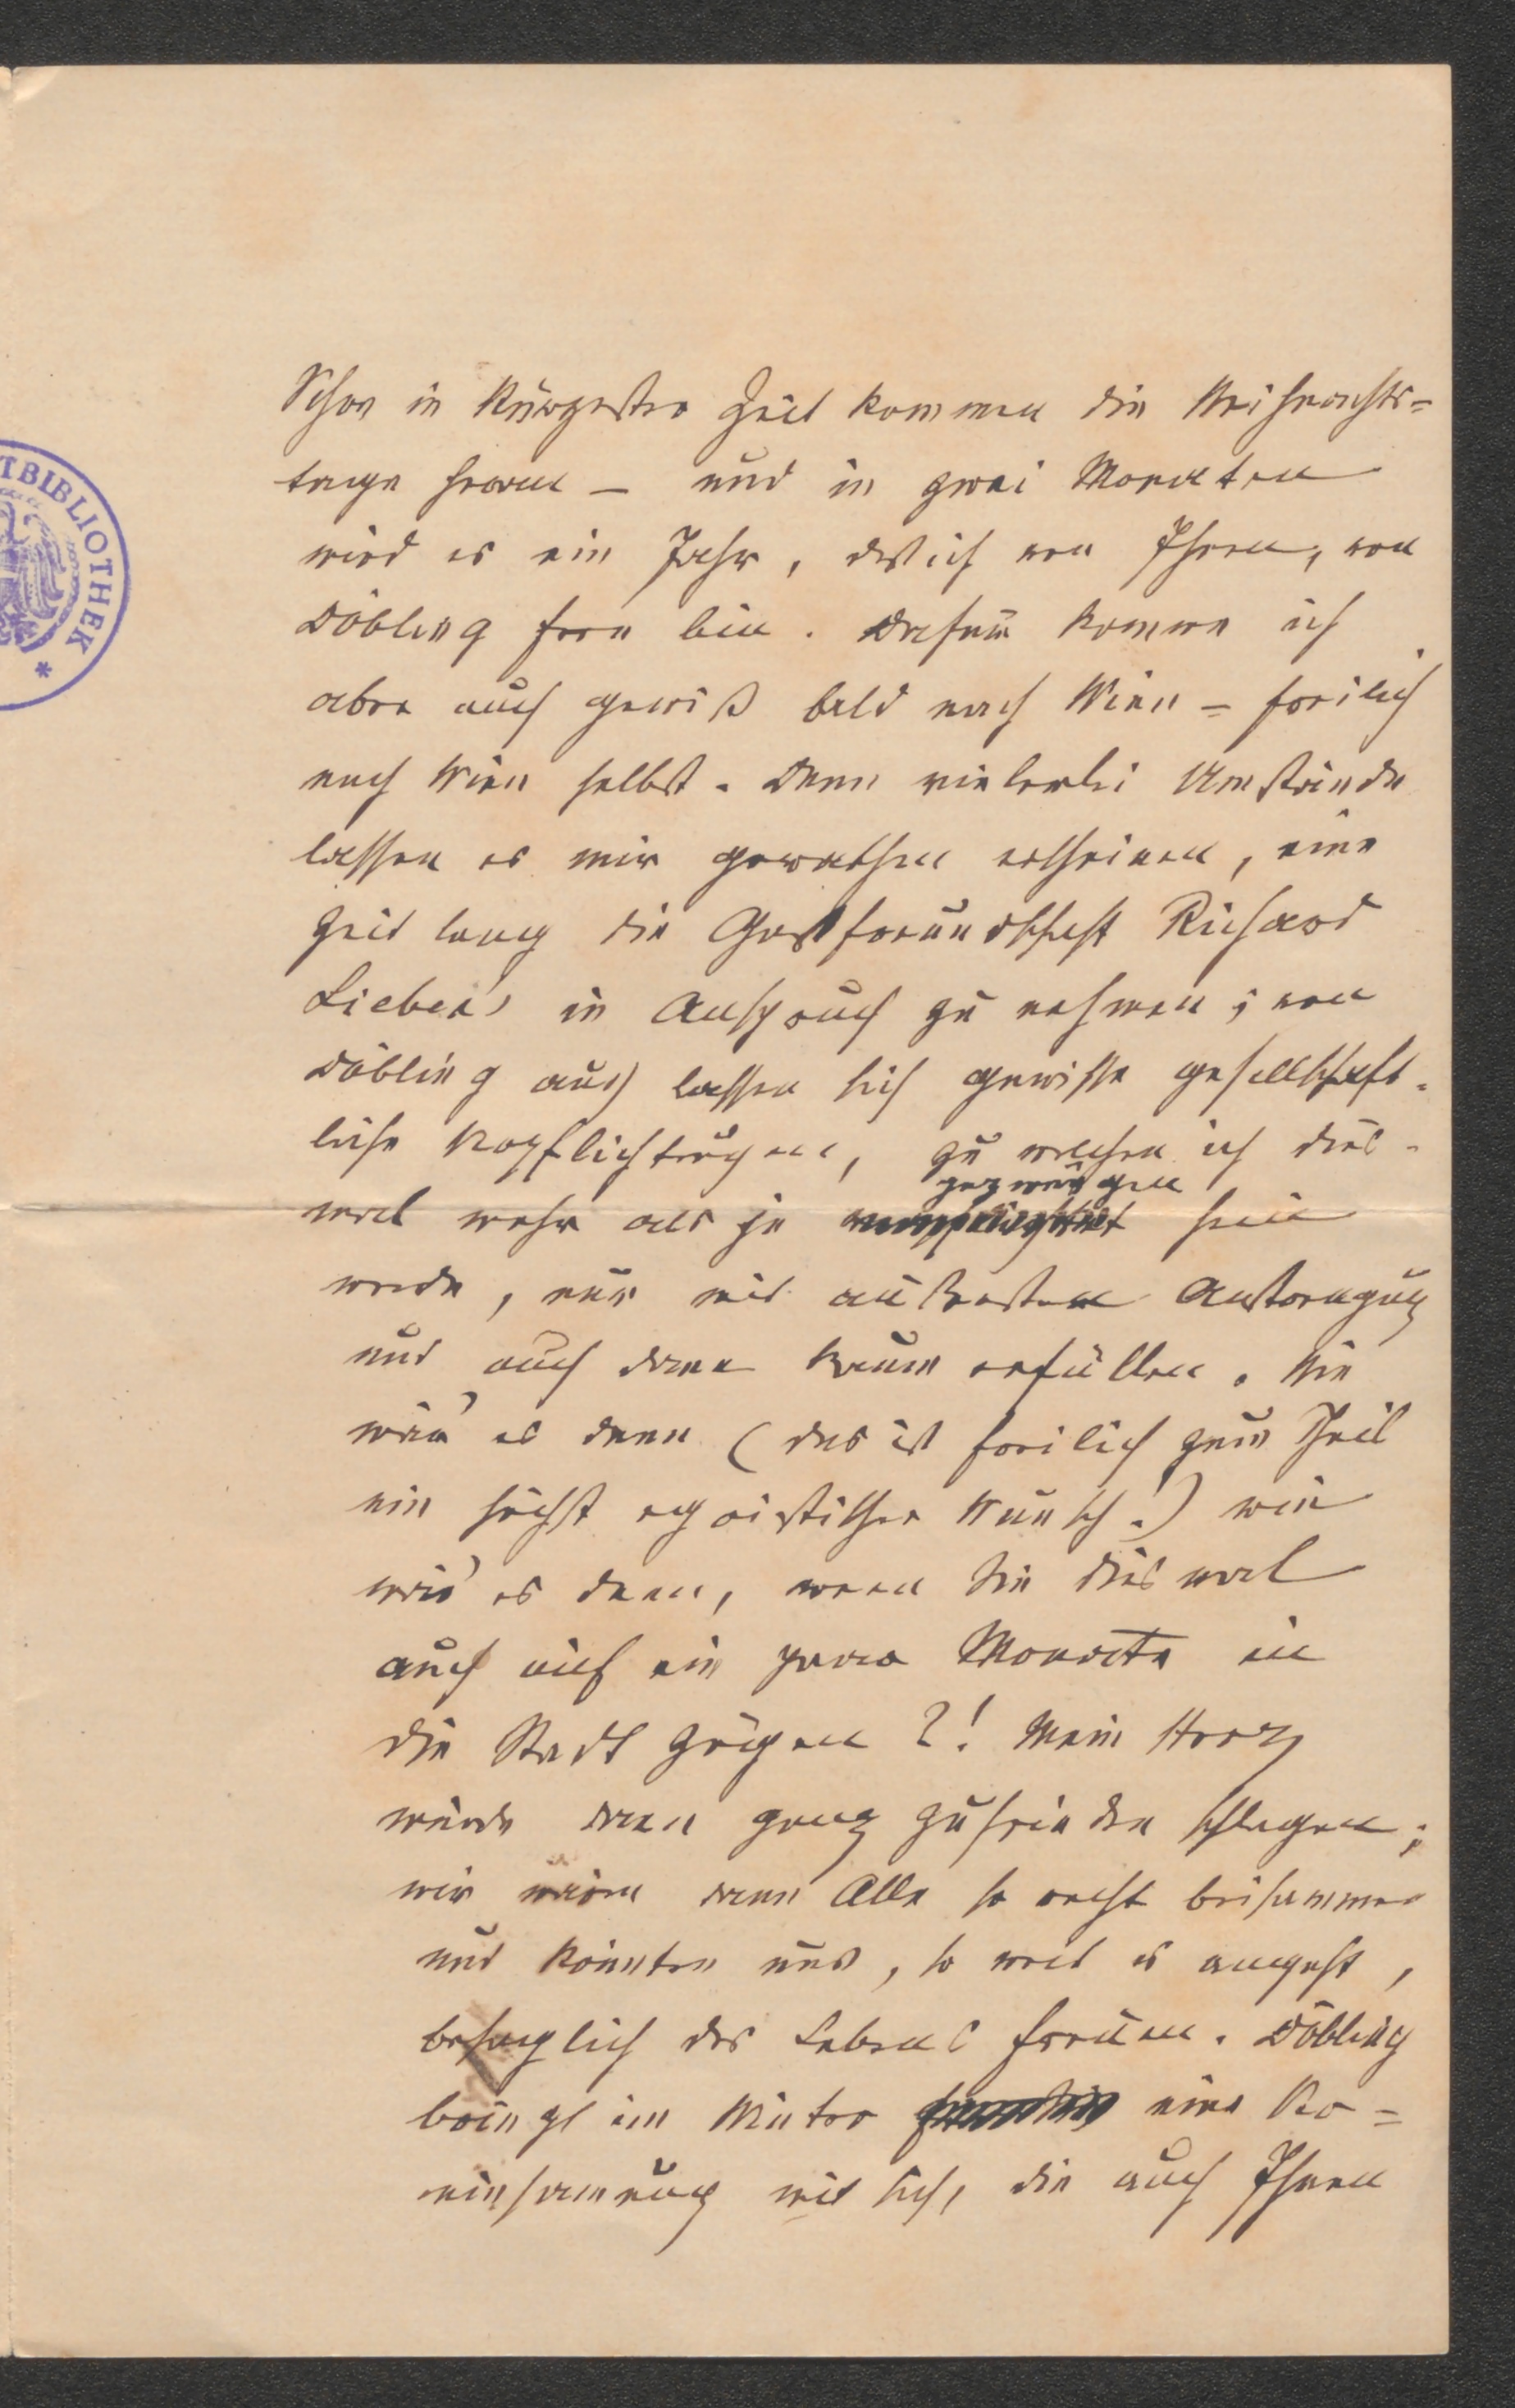 Schon in kürzester Zeit kommen die Weihnachts=
tage heran – und in zwei Monaten
wird es ein Jahr, daß ich von Ihnen, von
Döbling fern bin. Drum komme ich
aber auch gewiß bald nach Wien – freilich
nach Wien selbst. Denn vielerlei Umstände
lassen es mir gerathen erscheinen, eine
Zeit lang die Gastfreundschaft Richard
Lieben's in Anspruch zu nehmen; von
Döbling aus lassen sich gewisse gesellschaft-
liche Verpflichtungen, zu welchen ich dies-
gezwungen
mal mehr als je verpflichtet sein
werde, nur mit äußersten Anstrengung
und auch dann kaum erfüllen. Wie
wär' es denn (das ist freilich zum Theil
ein höchst egoistischer Wunsch!) wie
wär' es denn, wenn Sie diesmal
auch auf ein paar Monate in
die Stadt zögen?! Mein Herz
würde dann ganz zufrieden schlagen;
wir wären dann Alle so recht beisammen
und könnten uns, so weit es angeht,
behaglich des Lebens freuen. Döbling
bringt im Winter eine Ver=
einsamung mit sich, die auch Ihnen
TBIBLIOTHEK *